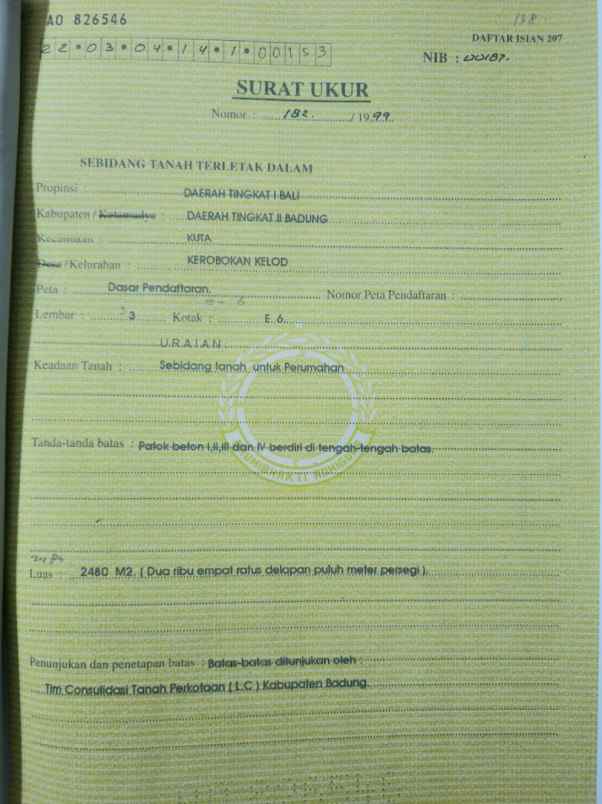 AO 826546
138
22•03•04•14•1•00153
DAFTAR ISIAN 207
NIB : 00187.
SURAT UKUR
Nomor : 182. / 1999.
SEBIDANG TANAH TERLETAK DALAM
Propinsi : DAERAH TINGKAT I BALI
Kabupaten / Kotamadya : DAERAH TINGKAT II BADUNG
Kecamatan : KUTA
Desa / Kelurahan : KEROBOKAN KELOD
Peta : Dasar Pendaftaran. Nomor Peta Pendaftaran :
Lembar : 3 Kotak : E.6.
URAIAN.
Keadaan Tanah : Sebidang tanah untuk Perumahan
Tanda-tanda batas : Patok beton I,II,III dan IV berdiri di tengah-tengah batas.
Luas : 2480 M2. ( Dua ribu empat ratus delapan puluh meter persegi ).
Penunjukan dan penetapan batas : Batas-batas ditunjukan oleh :
Tim Consulidasi Tanah Perkotaan ( L.C ) Kabupaten Badung.